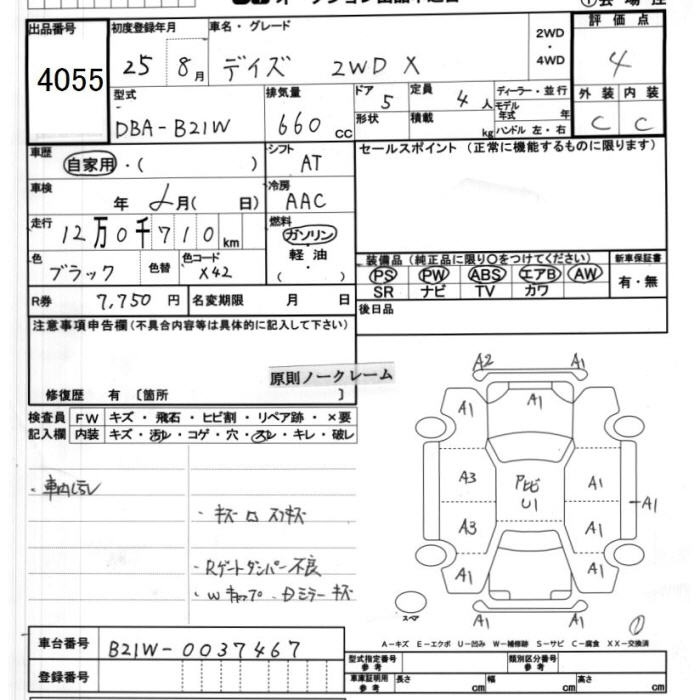 出品番号
4055
初度登録年月
25 8月
車名・グレード
デイズ 2WD X
2WD
・
4WD
評価点
4
外装 内装
C C
型式
DBA-B21W
排気量
660 CC
ドア
5
形状
定員
4人
積載
kg
ディーラー・並行
モデル
年式 年
ハンドル 左・右
車歴
自家用・( )
シフト
AT
セールスポイント (正常に機能するものに限ります)
車検
年 月( 日)
冷房
AAC
走行
12万0千710km
燃料
ガソリン
・
軽油
( ・ )
色
ブラック
色替
色コード
X42
R券
7,750円
名変期限 月 日
装備品(純正品に限り○をつけてください)
PS PW ABS エアB AW
SR ナビ TV カワ
新車保証書
有・無
後日品
注意事項申告欄(不具合内容等は具体的に記入して下さい)
原則ノークレーム
修復歴 有 〔箇所 〕
検査員
記入欄
FW キズ・飛石・ヒビ割・リペア跡・×要
内装 キズ・汚レ・コゲ・穴・スレ・キレ・破レ
・車内汚レ
・キズ ロ スリキズ
・Rゲートダンパー不良
・Wキャップ・Dミラーキズ
A2 A1
A1 A1 A1
A3 A1
A1
A3 A1
U1
A1 A1
A1
スペア
1
A－キズ E－エクボ U－凹み W－補修跡 S－サビ C－腐食 XX－交換済
車台番号
B21W-0037467
登録番号
型式指定番号
参考
類別区分番号
参考
車庫証明用
参考
長さ cm
幅 cm
高さ cm